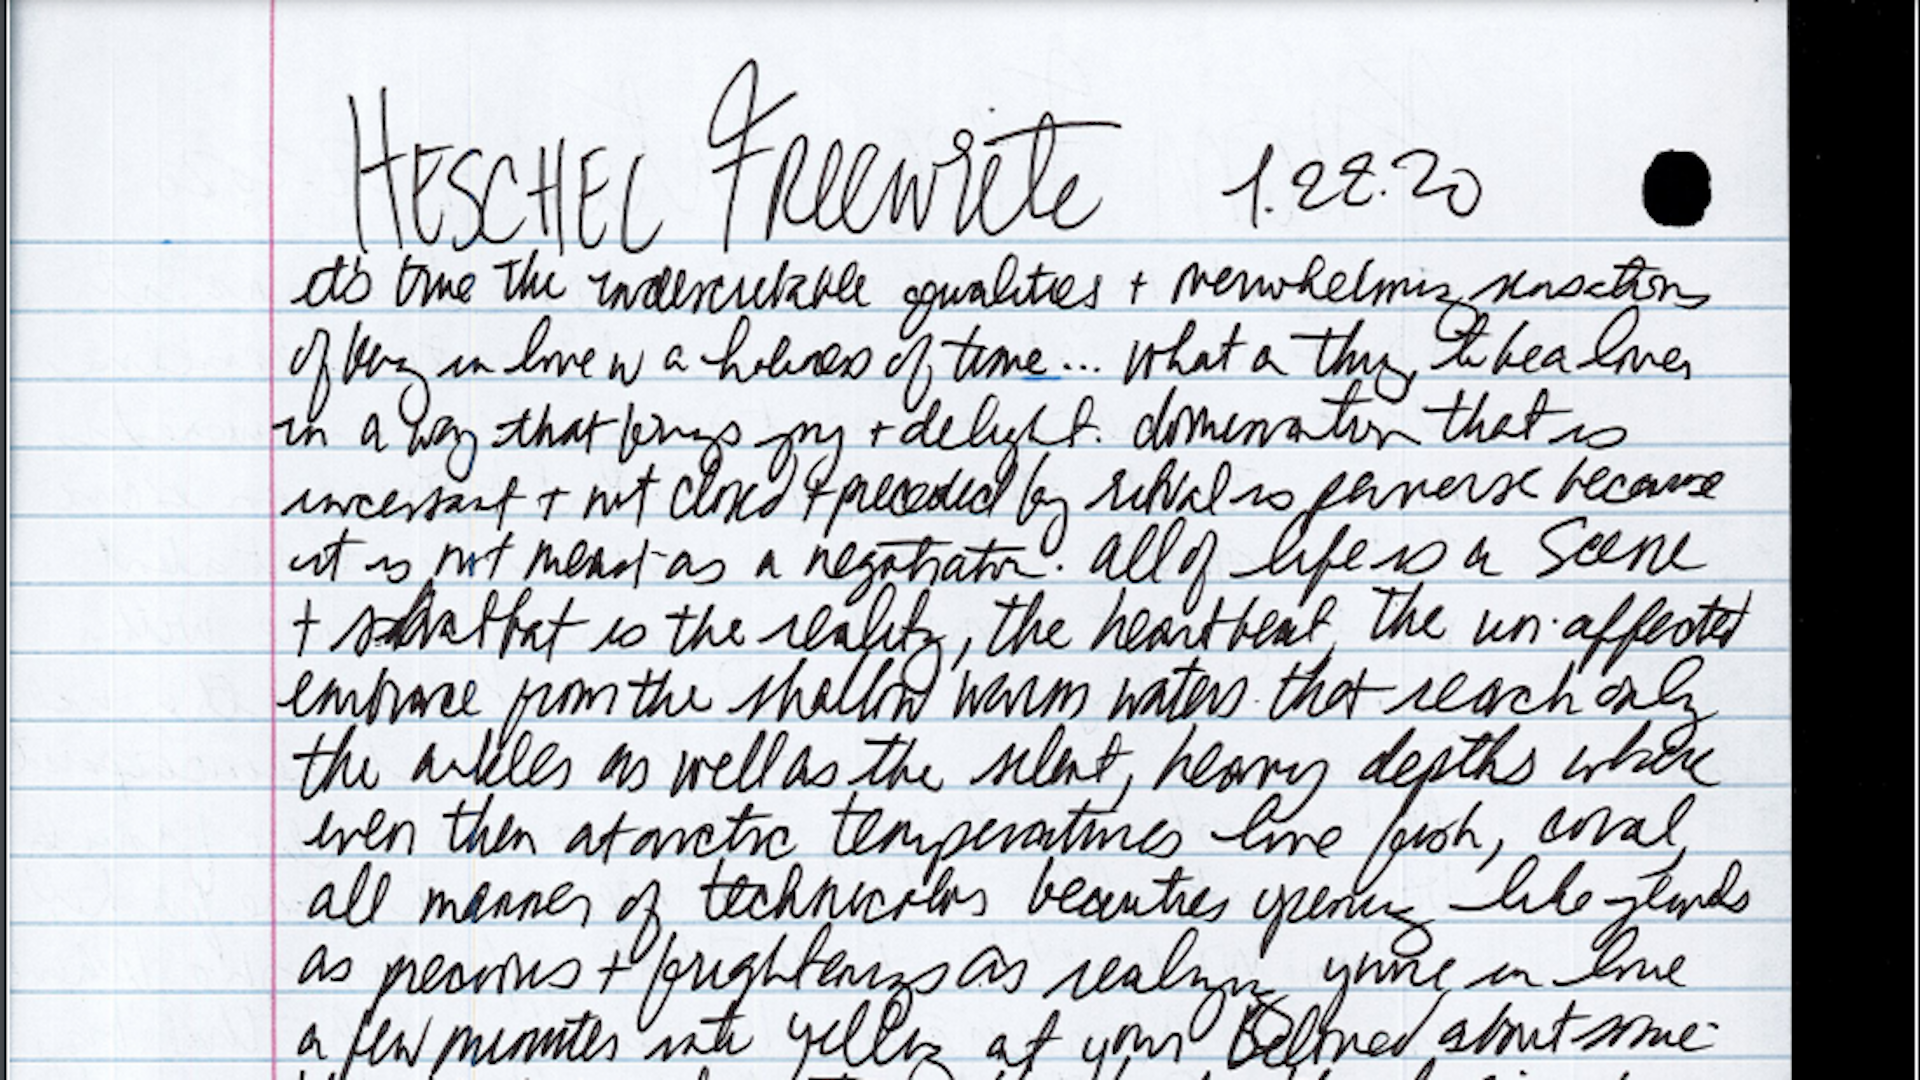 HESCHEL Freewrite 1.28.20
it's time the indescribable qualities + overwhelming sensations
of being in love w a holiness of time... what a thing, to be a lover
in a way that brings joy + delight. domination that is
incessant + not closed + preceded by ritual is perverse because
it is not meant as a negotiation. all of life is a Scene
+ that is the reality, the heartbeat, the un-affected
embrace from the shallow warm waters that reach only
the ankles as well as the silent, heavy depths where
even then at arctic temperatures live fish, coral,
all manner of technicolor beauties like
as precious + frightening as realizing you're in love
a few minutes into yelling at your Beloved about some-